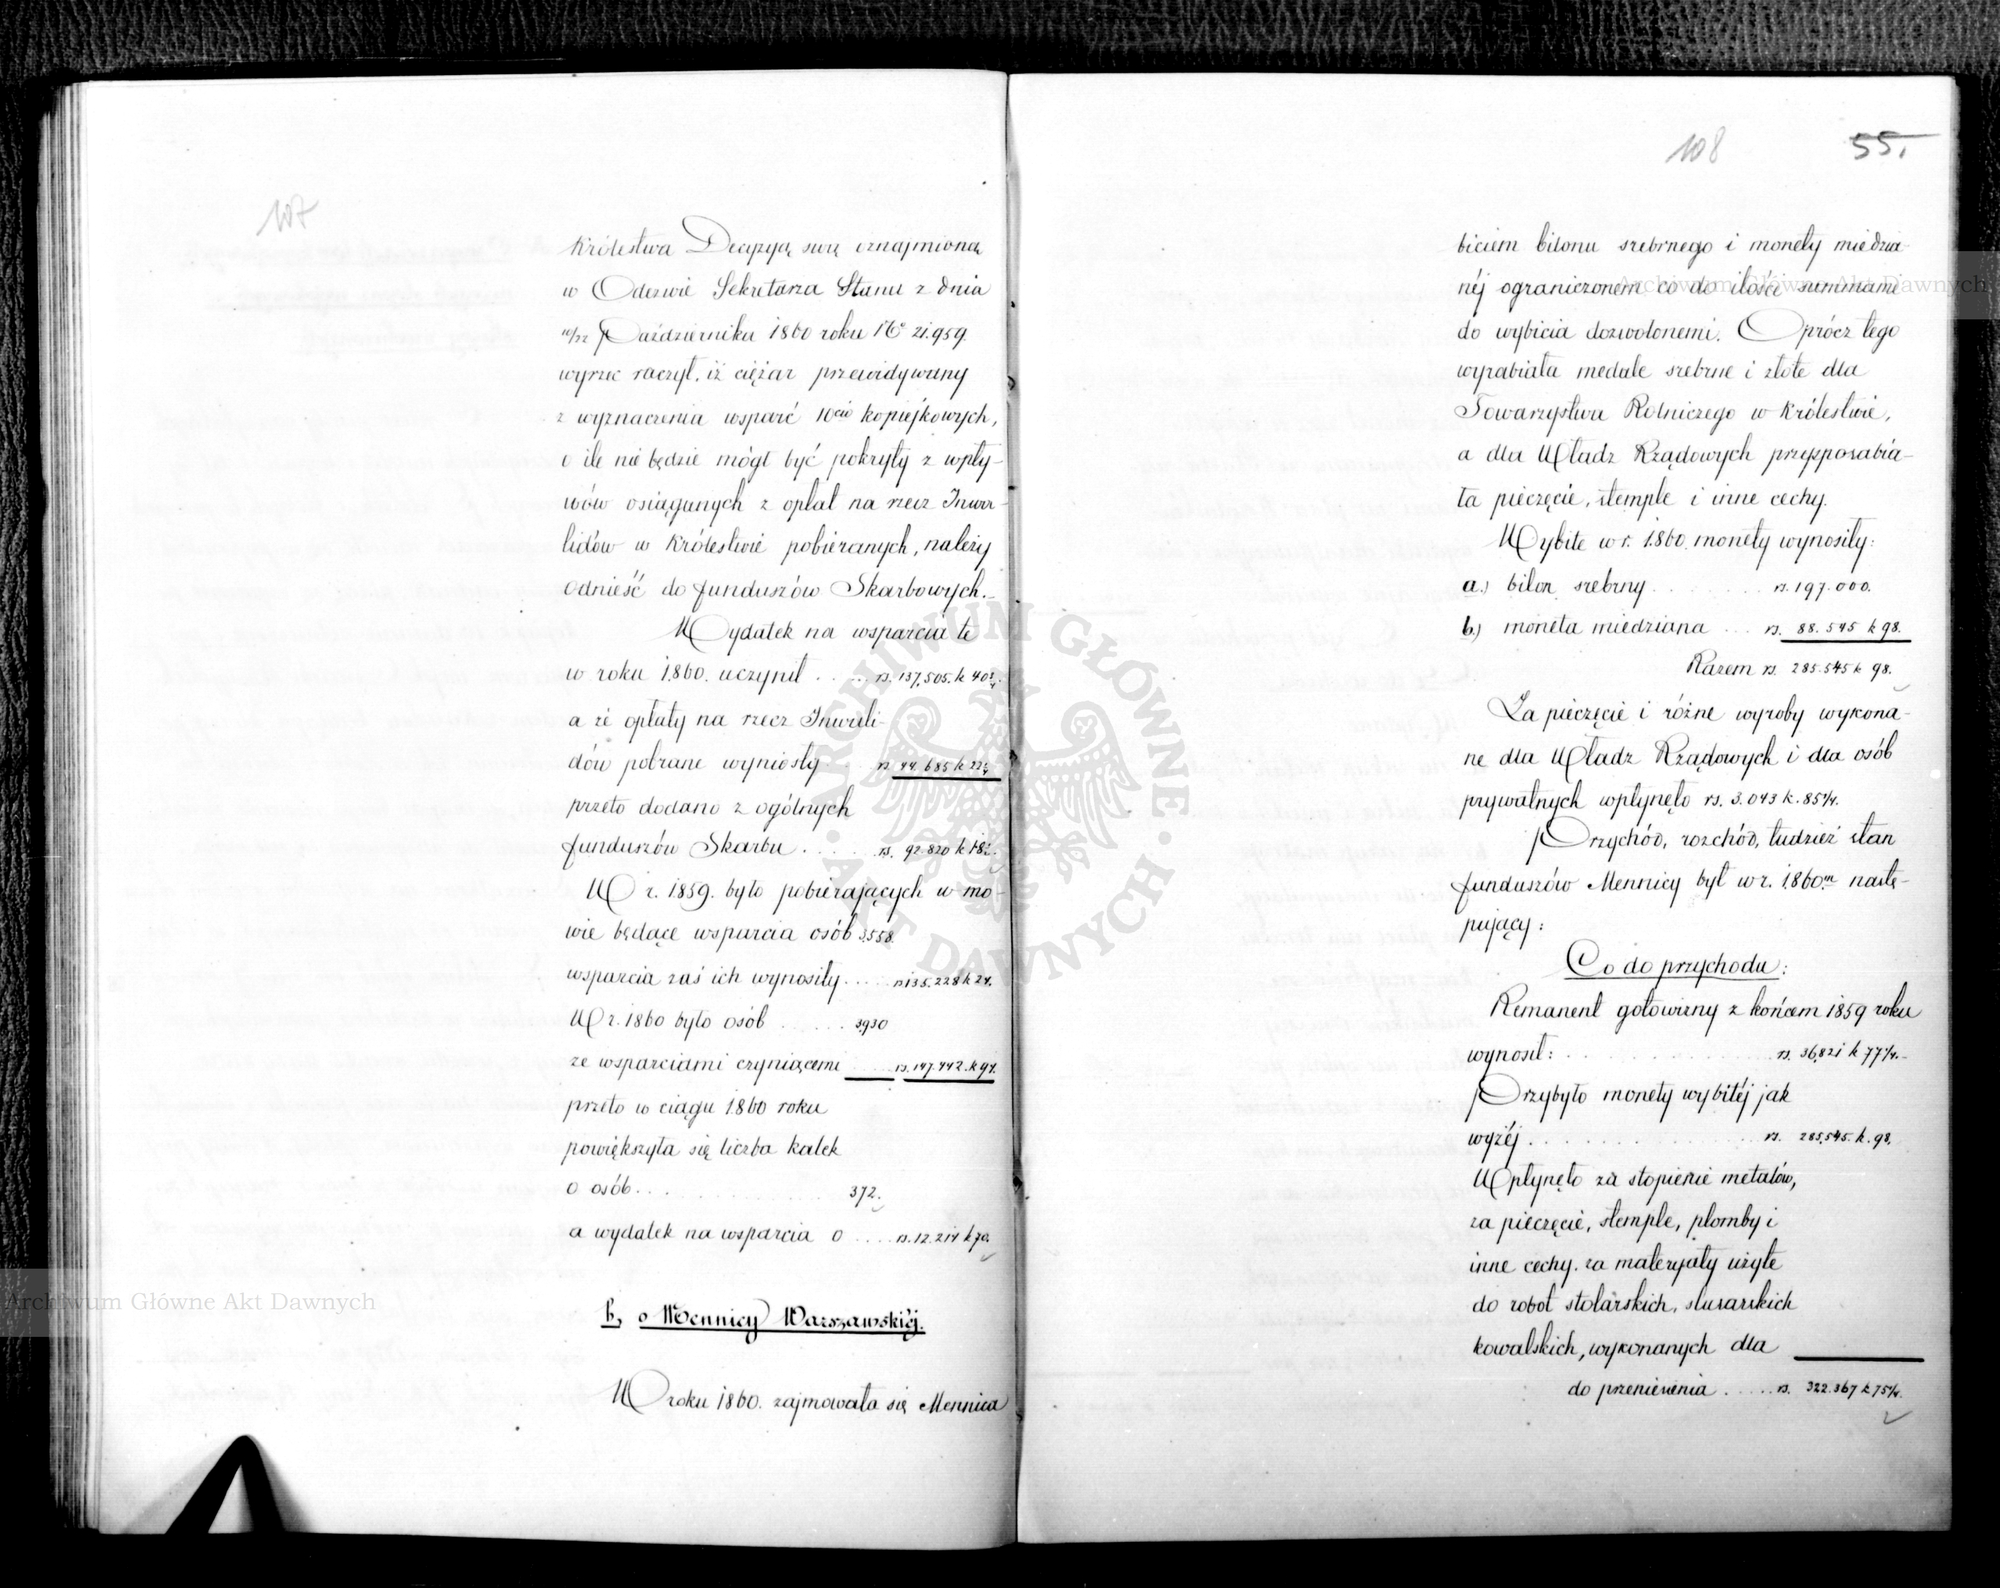 107
Królestwa Decyzyą swą oznajmioną
w Odezwie Sekretarza Stanu z dnia
10/22 Października 1860 roku No 21.959.
wyrzec raczył, iż ciężar przewidywany
z wyznaczenia wsparć 10cio kopiejkowych,
o ile nie będzie mógł być pokryty z wpły-
wów osiąganych z opłat na rzecz Inwa-
lidów w Królestwie pobieranych, należy
odnieść do funduszów Skarbowych.-
Wydatek na wsparcia te
w roku 1860. uczynił . . . . rs. 137,505. k 40¾.
a że opłaty na rzecz Inwali-
dów pobrane wyniosły . . . rs 44.685 k 22¼
przeto dodano z ogólnych
funduszów Skarbu . . . . . . rs. 92.820 k 18½.
W r. 1859. było pobierających w mo-
wie będące wsparcia osób 3,558.
wsparcia zaś ich wynosiły . . . . . rs 135.228 k 24.
W r. 1860 było osób . . . . . . 3,930
ze wsparciami czyniącemi . . . . . rs. 147.442. k 94.
przeto w ciągu 1860 roku
powiększyła się liczba kalek
o osób . . . . . . . . . . . . . . 372.
a wydatek na wsparcia o . . . . rs. 12.214 k 70.
b, o Mennicy Warszawskiéj.
W roku 1860. zajmowała się Mennica
108
55.
biciem bilonu srebrnego i monety miedzia-
néj ograniczoném co do ilości summami
do wybicia dozwolonemi. Oprócz tego
wyrabiała medale srebrne i złote dla
Towarzystwa Rolniczego w Królestwie,
a dla Władz Rządowych przysposabia-
ła pieczęcie, stemple i inne cechy.
Wybite w r. 1860. monety wynosiły:
a.) bilon srebrny . . . . . . . . rs. 197.000.
b.) moneta miedziana . . . rs. 88.545 k 98.
Razem rs. 285.545 k 98.
Za pieczęcie i różne wyroby wykona-
ne dla Władz Rządowych i dla osób
prywatnych wpłynęło rs. 3.043 k. 85¼.
Przychód, rozchód, tudzież stan
funduszów Mennicy był w r. 1860.m nastę-
pujący:
Co do przychodu:
Remanent gotowizny z końcem 1859 roku
wynosił: . . . . . . . . . . . . . rs. 36,821 k 77¼.-
Przybyło monety wybitéj jak
wyżéj . . . . . . . . . . . . . . rs. 285,545. k. 98.
Wpłynęło za stopienie metalów,
za pieczęcie, stemple, plomby i
inne cechy. za materyały użyte
do robot stolarskich, slusarskich
kowalskich, wykonanych dla
do przeniesienia . . . . . rs. 322.367 k 75¼.
ARCHIWUM GŁÓWNE · AKT DAWNYCH ·
Archiwum Główne Akt Dawnych
Archiwum Główne Akt Dawnych